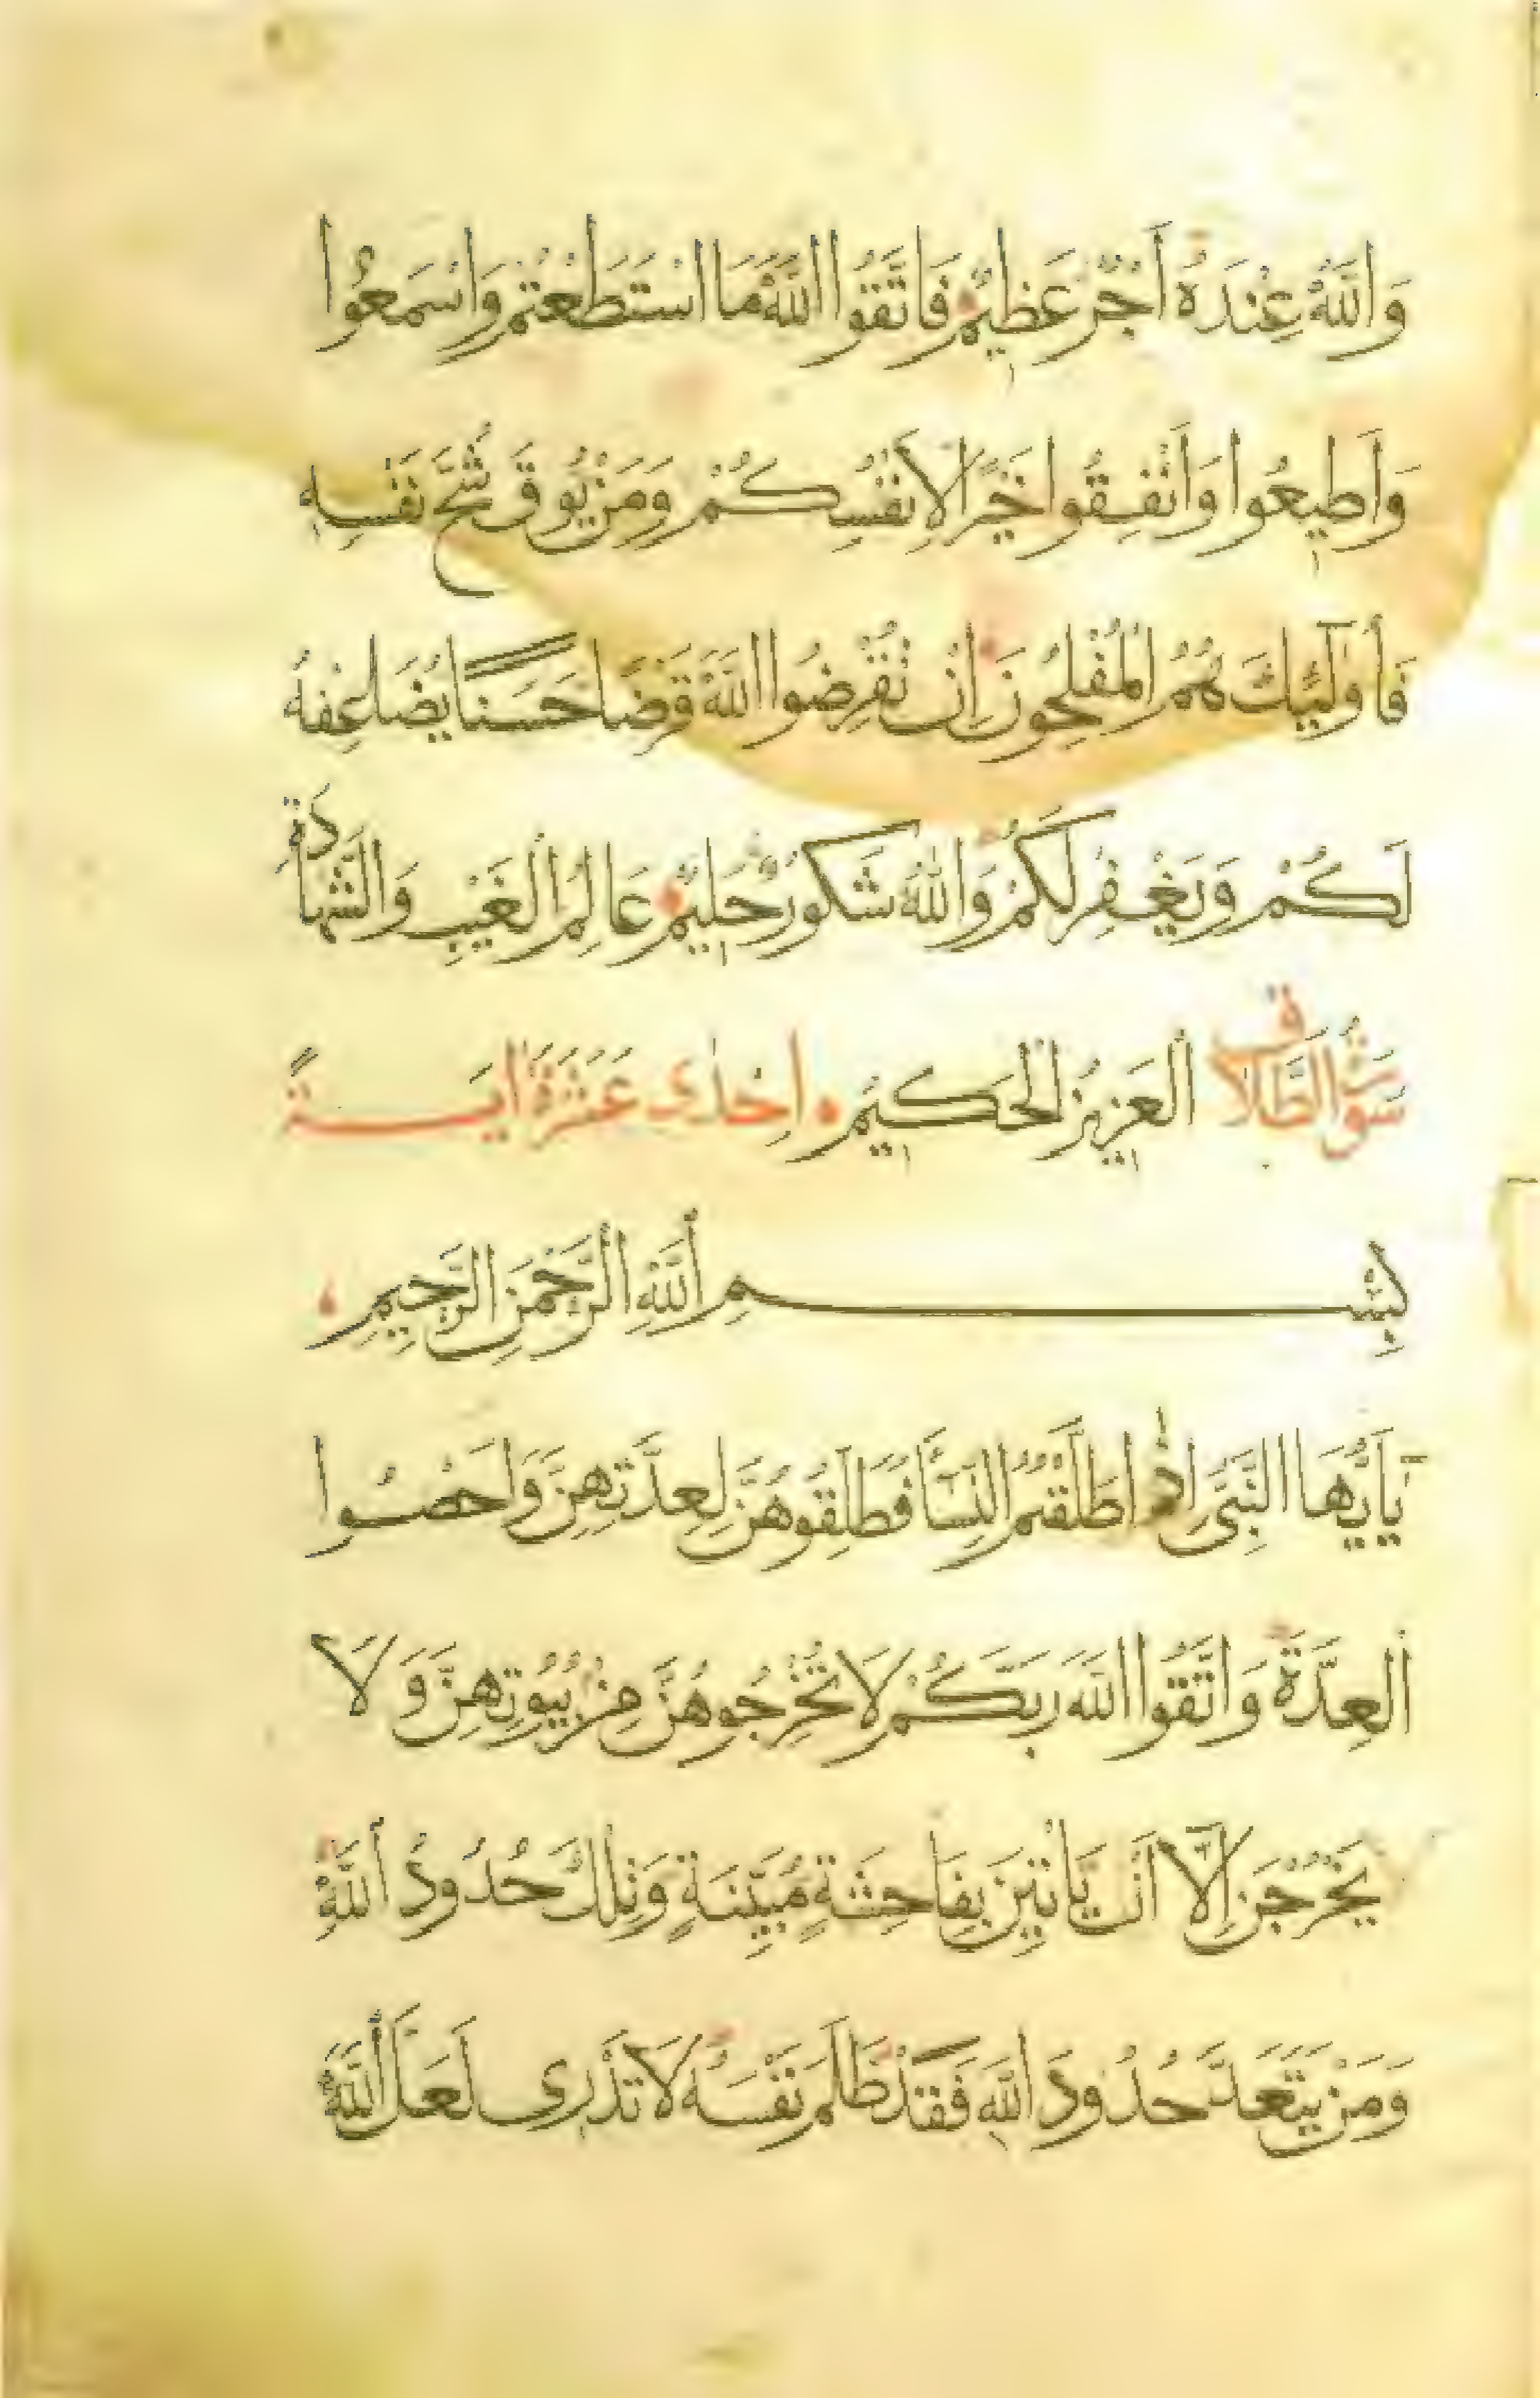 وَاللّٰهُ عِنْدَهُ اَجْرٌ عَظِيْمٌ فَاتَّقُوا اللّٰهَ مَا اسْتَطَعْتُمْ وَاسْمَعُوا
وَاَطِيعُوا وَاَنْفِقُوا خَيْرًا لِاَنْفُسِكُمْ وَمَنْ يُوقَ شُحَّ نَفْسِهِ
فَاُولٰٓئِكَ هُمُ الْمُفْلِحُونَ اِنْ تُقْرِضُوا اللّٰهَ قَرْضًا حَسَنًا يُضَاعِفْهُ
لَكُمْ وَيَغْفِرْ لَكُمْ وَاللّٰهُ شَكُورٌ حَلِيمٌ عَالِمُ الْغَيْبِ وَالشَّهَادَةِ
سُورَةُ الطَّلَاقِ الْعَزِيزُ الْحَكِيمُ اِحْدٰى عَشَرَةَ اٰيَةً
بِسْمِ اللّٰهِ الرَّحْمٰنِ الرَّحِيمِ
يَآاَيُّهَا النَّبِىُّ اِذَا طَلَّقْتُمُ النِّسَآءَ فَطَلِّقُوهُنَّ لِعِدَّتِهِنَّ وَاَحْصُوا
الْعِدَّةَ وَاتَّقُوا اللّٰهَ رَبَّكُمْ لَا تُخْرِجُوهُنَّ مِنْ بُيُوتِهِنَّ وَلَا
يَخْرُجْنَ اِلَّآ اَنْ يَاْتِيْنَ بِفَاحِشَةٍ مُبَيِّنَةٍ وَتِلْكَ حُدُودُ اللّٰهِ
وَمَنْ يَتَعَدَّ حُدُودَ اللّٰهِ فَقَدْ ظَلَمَ نَفْسَهُ لَا تَدْرِى لَعَلَّ اللّٰهَ